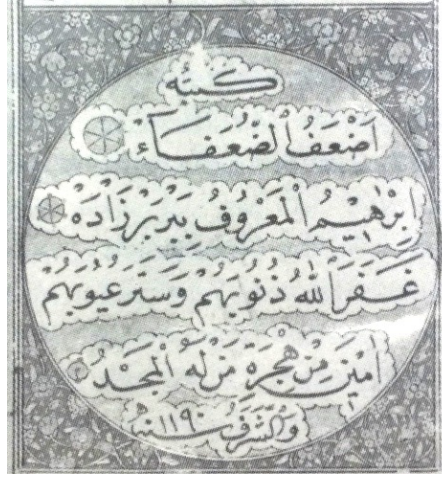 كتبه
اَضْعَفُ الضُّعَفَاءْ
اِبْرٰهِيْمُ الْمَعْرُوُفُ بِيَرْبَرْزَادَهْ
غَفَرَ اللهُ ذُنُوبَهُمْ وَسَتَرَ عُيُوبَهُمْ
اٰمِينَ مِنْ هِجْرَةِ مَنْ لَهُ الْمَجْدُ
وَالشَّرَفُ سنه ١١٩٠